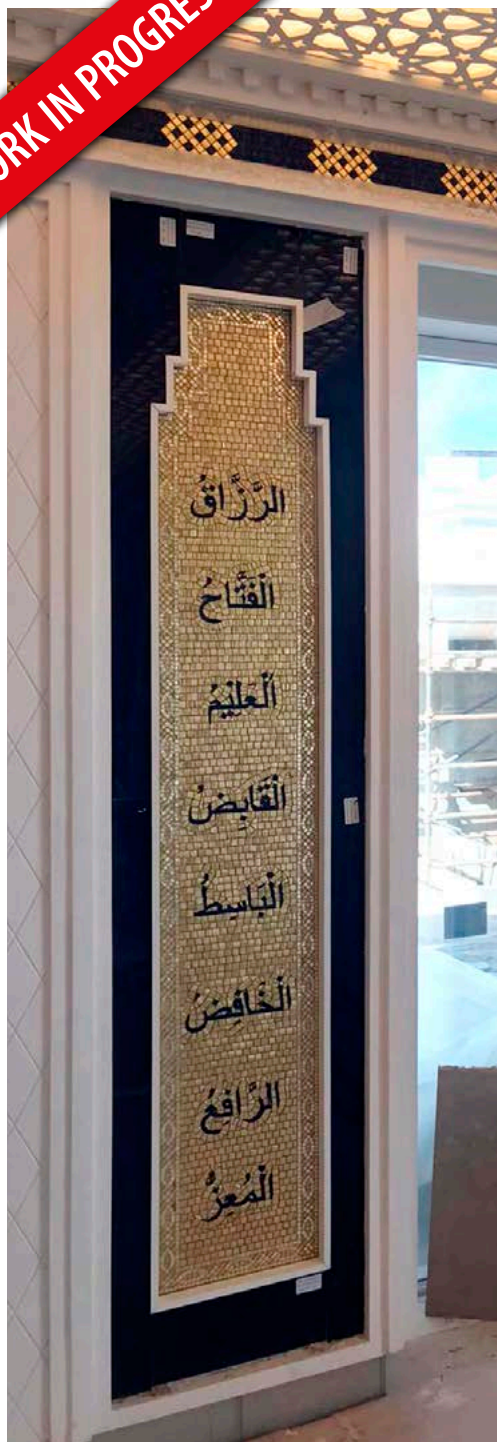 WORK IN PROGRES
الرَّزَّاقُ
الْفَتَّاحُ
الْعَلِيْمُ
الْقَابِضُ
الْبَاسِطُ
الْخَافِضُ
الرَّافِعُ
الْمُعِزُّ